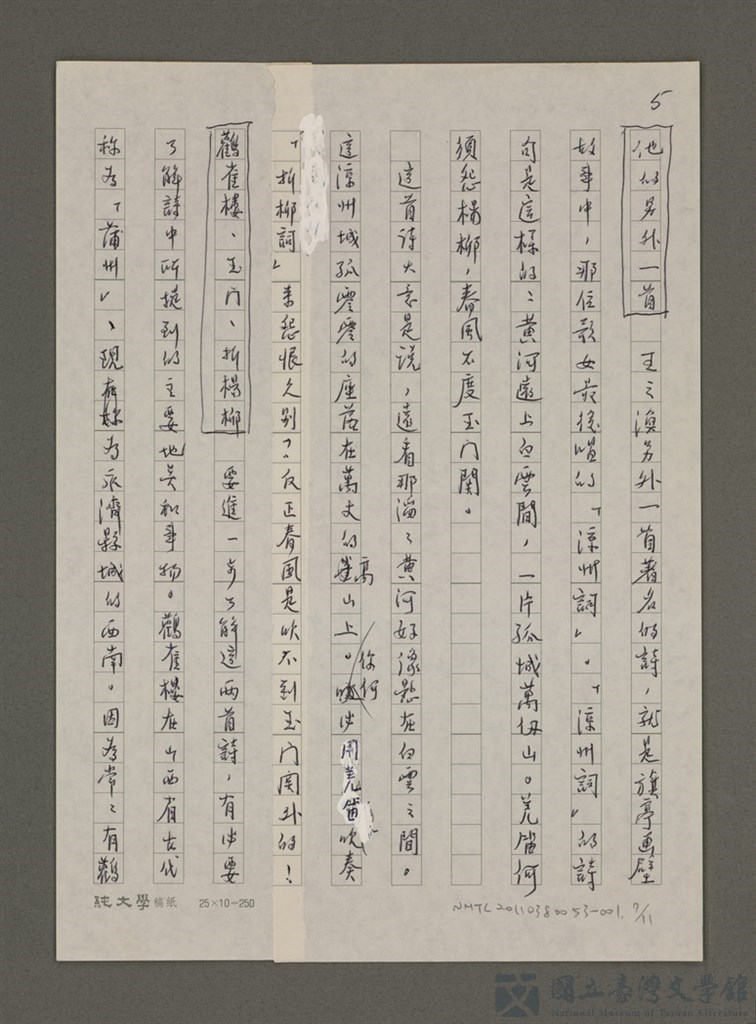 5
他的另外一首　王之渙另外一首著名的詩，就是旗亭畫壁
故事中，那位歌女最後唱的「涼州詞」。「涼州詞」的詩
句是這樣的：黃河遠上白雲間，一片孤城萬仞山。羌笛何
須怨楊柳，春風不度玉门関。
這首詩大意是說，遠看那滔滔黃河好像懸在白雲之間。
這涼州城孤零零的座落在萬丈的高山上。你何必用羌笛吹奏
「折柳詞」來怨恨久別？反正春風是吹不到玉门関外的！
鸛雀樓、玉门、折楊柳　要進一步了解這兩首詩，有必要
了解詩中所提到的主要地点和事物。鸛雀樓在山西省古代
称為「蒲州」、現在称為永濟縣城的西南。因為常々有鸛
純文學稿紙　25×10=250
NMTL20110380053-001. 7/11
國立臺灣文學館
National Museum of Taiwan Literature